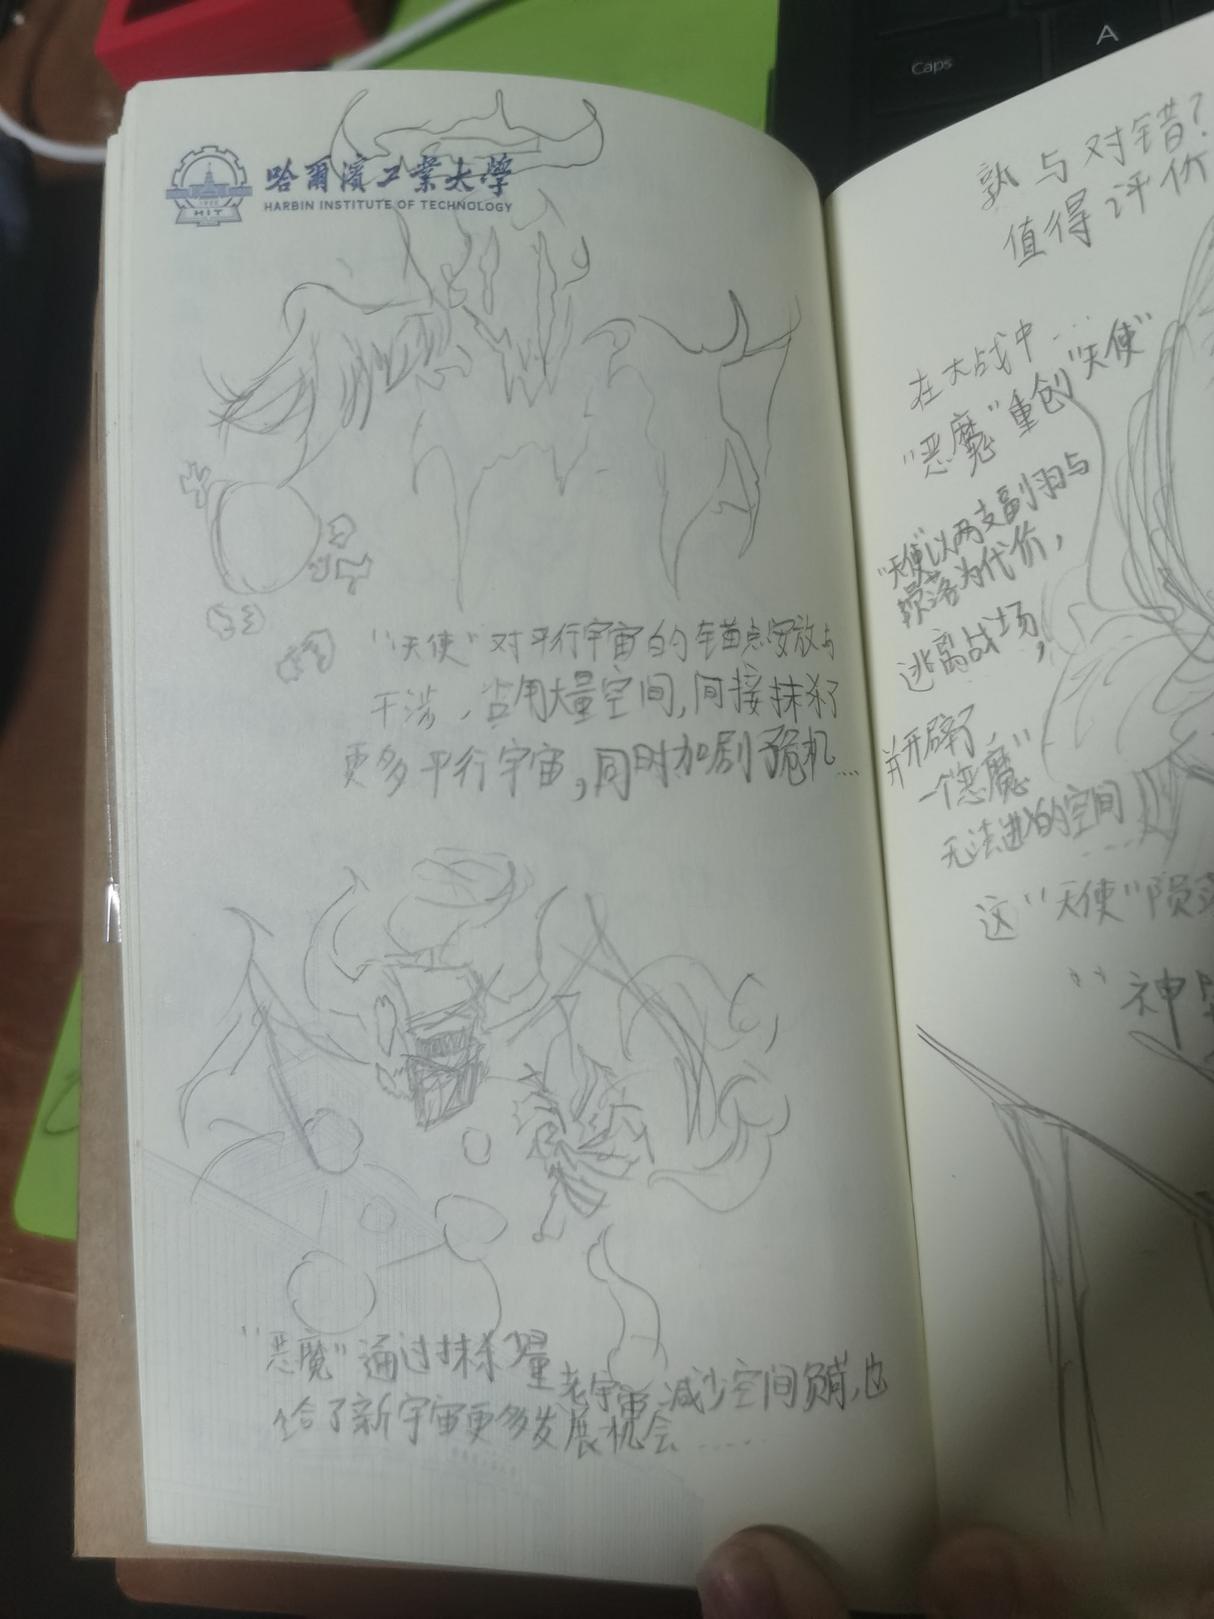 Caps
A
哈爾濱工業大學
HARBIN INSTITUTE OF TECHNOLOGY
HIT
"天使"对平行宇宙的锚点安放与
干涉，占用大量空间，间接抹杀了
更多平行宇宙，同时加剧了危机...
"恶魔"通过抹杀少量老宇宙，减少空间负荷，也
给了新宇宙更多发展机会......
孰与对错？
值得评价
在大战中...
"恶魔"重创"天使"
"天使"以两支副羽与
陨落为代价，
逃离战场，
并开辟了
一个"恶魔"
无法进入的空间
......
这"天使"陨
"神